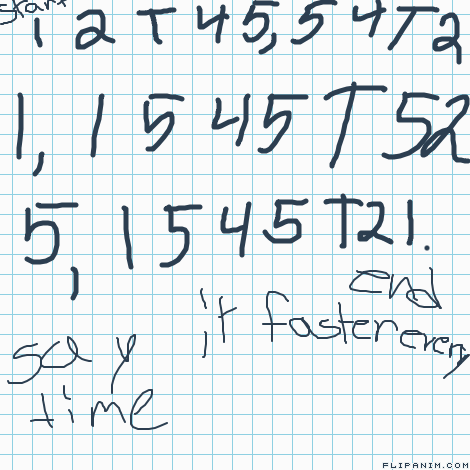 start
1 2 T 4 5, 5 4 T 2
1, 1 5 4 5 T 5 2
5, 1 5 4 5 T 2 !.
end
say it faster every
time
FLIPANIM.COM